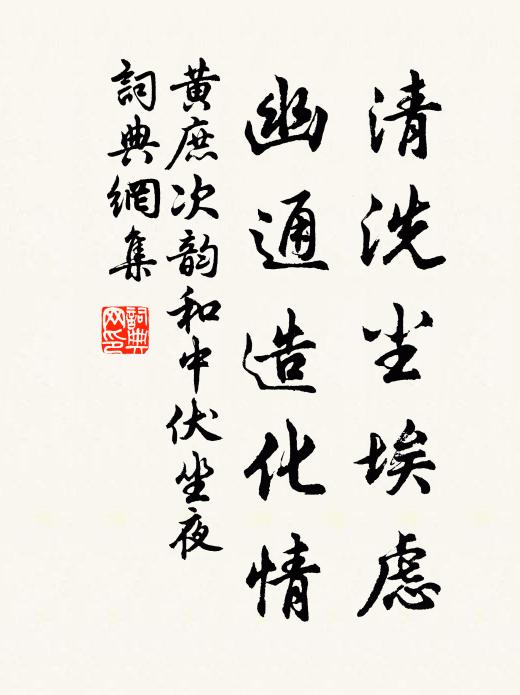 清洗尘埃虑
幽通造化情
黄庶次韵和中伏坐夜
詞典網集
詞典网印